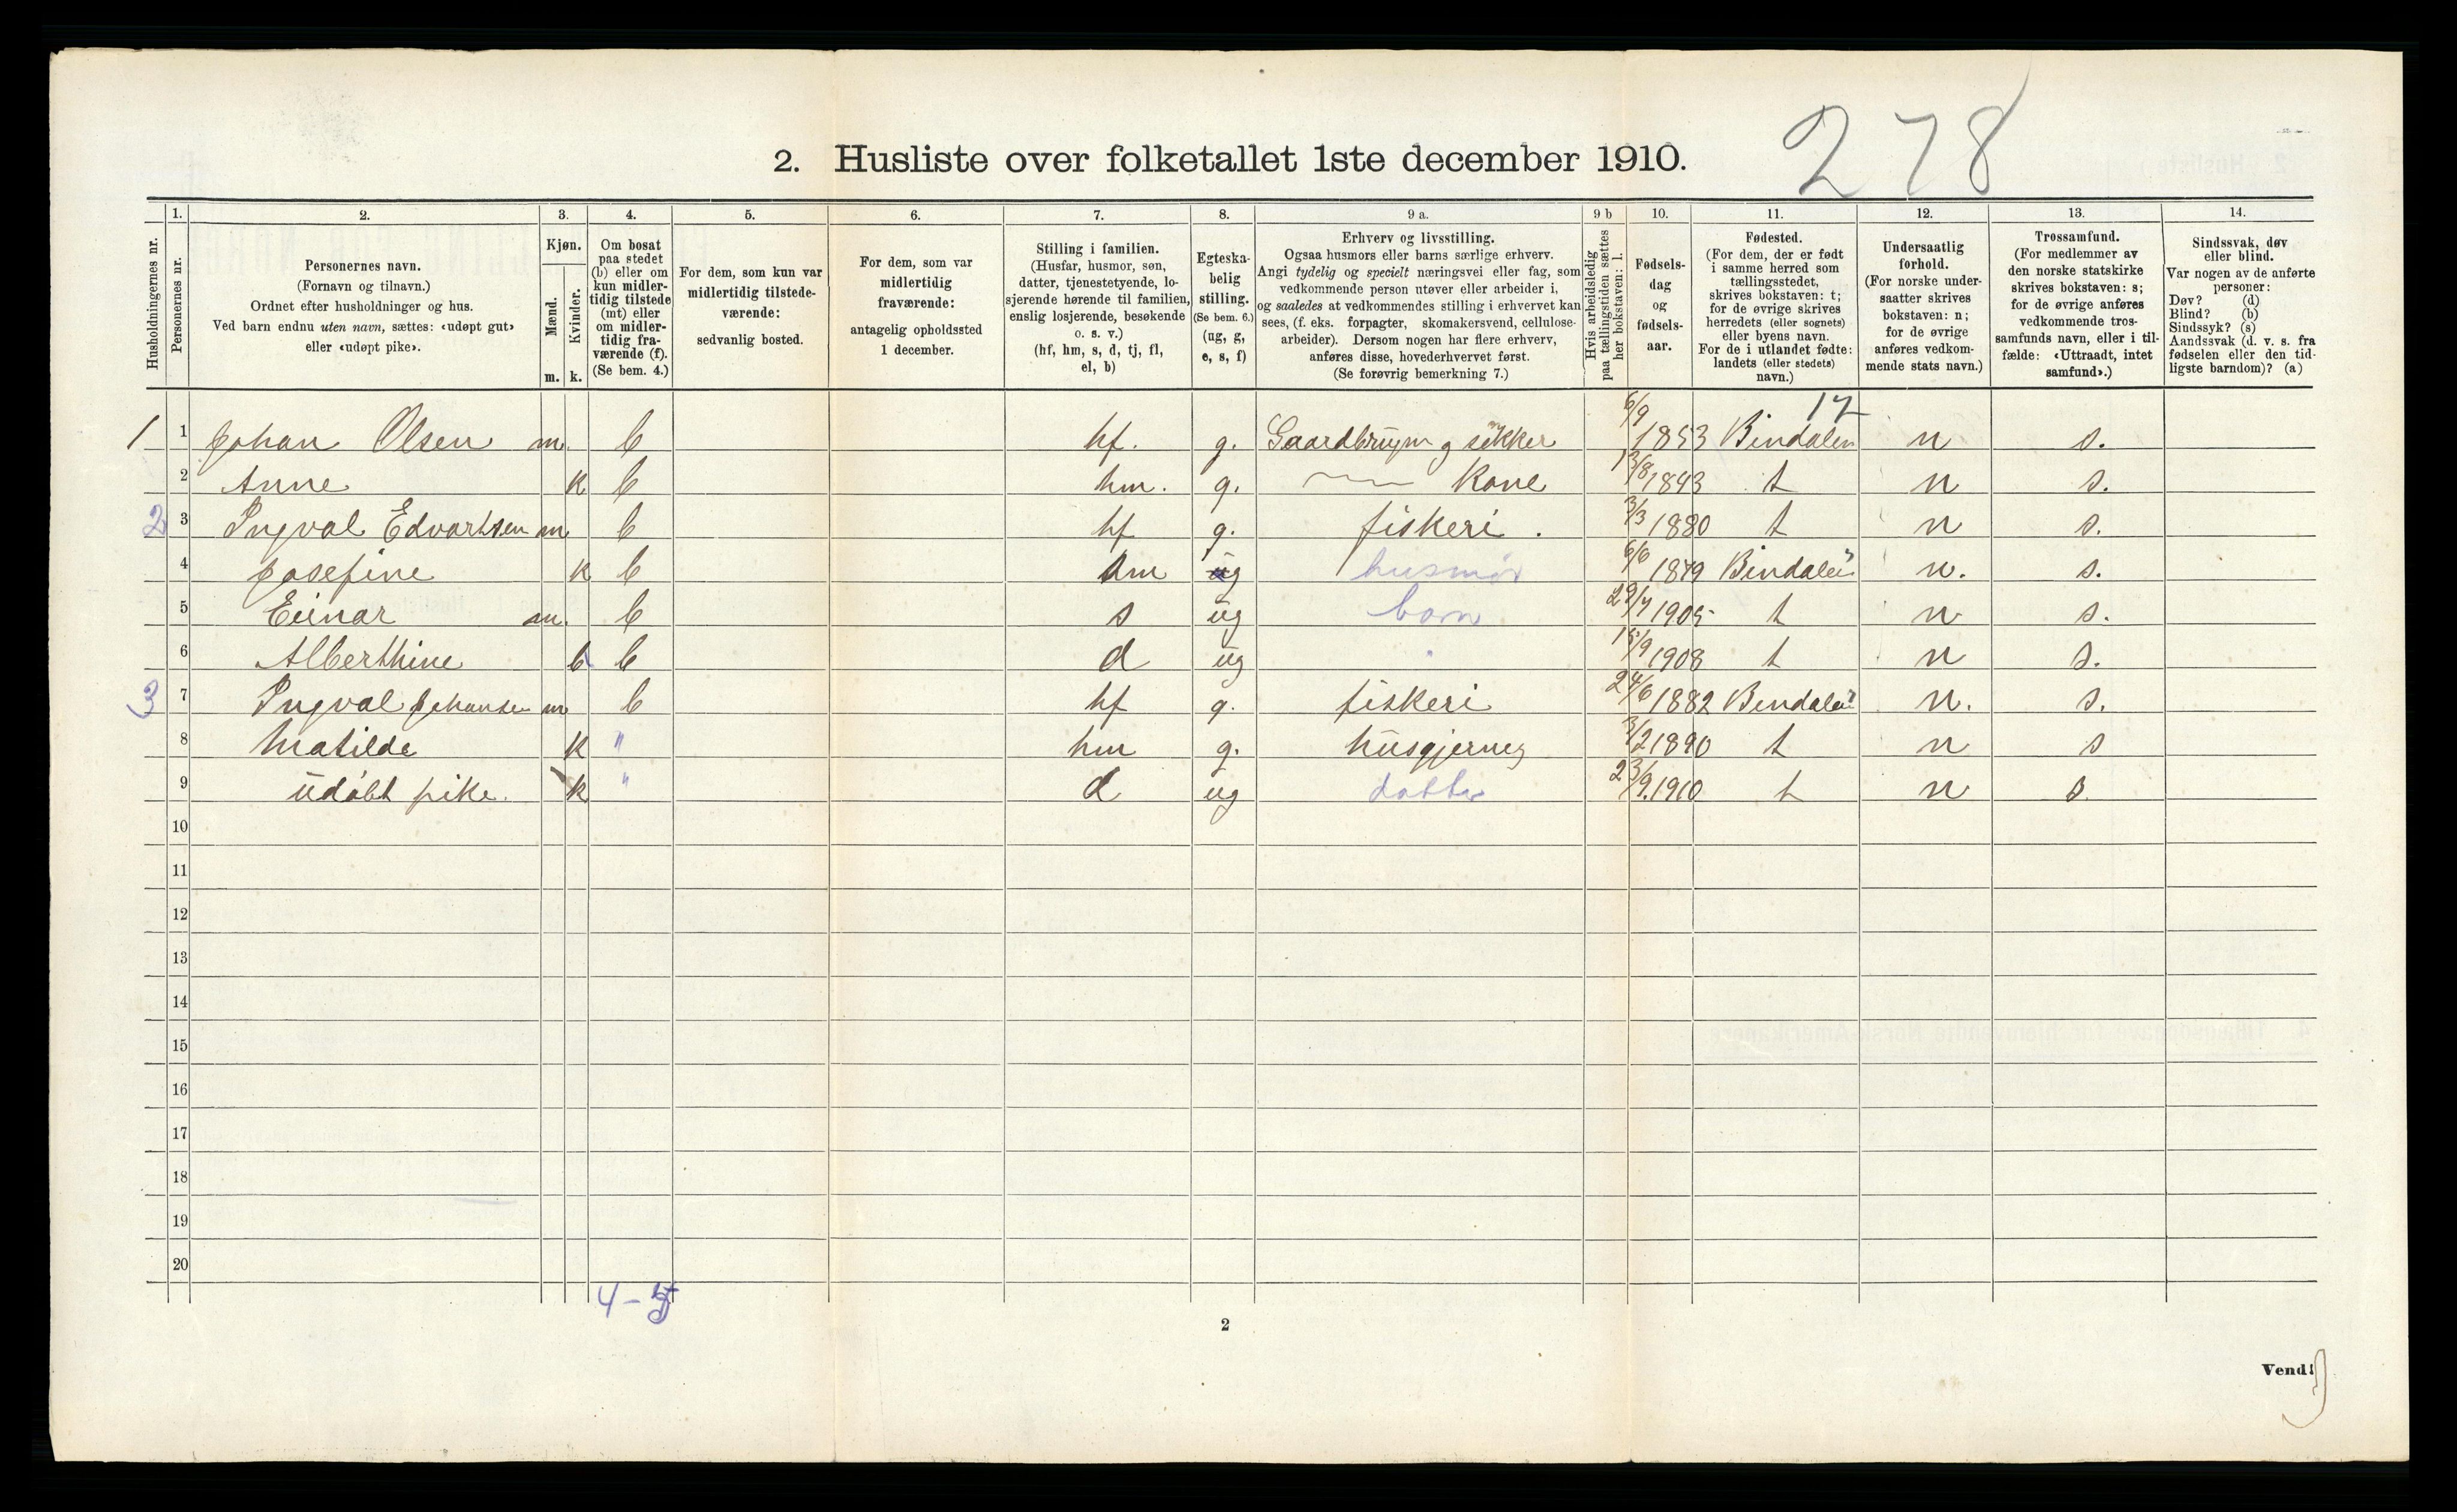 278
2. Husliste over folketallet 1ste december 1910.
Husholdningernes nr.
1.
Personernes nr.
2.
Personernes navn.
(Fornavn og tilnavn.)
Ordnet efter husholdninger og hus.
Ved barn endnu uten navn, sættes: «udøpt gut»
eller «udøpt pike».
3.
Kjøn.
Mænd.
Kvinder.
m. k.
4.
Om bosat
paa stedet
(b) eller om
kun midler-
tidig tilstede
(mt) eller
om midler-
tidig fra-
værende (f).
(Se bem. 4.)
5.
For dem, som kun var
midlertidig tilstede-
værende:
sedvanlig bosted.
6.
For dem, som var
midlertidig
fraværende:
antagelig opholdssted
1 december.
7.
Stilling i familien.
(Husfar, husmor, søn,
datter, tjenestetyende, lo-
sjerende hørende til familien,
enslig losjerende, besøkende
o. s. v.)
(hf, hm, s, d, tj, fl,
el, b)
8.
Egteska-
belig
stilling.
(Se bem. 6.)
(ug, g,
e, s, f)
9 a.
Erhverv og livsstilling.
Ogsaa husmors eller barns særlige erhverv.
Angi tydelig og specielt næringsvei eller fag, som
vedkommende person utøver eller arbeider i,
og saaledes at vedkommendes stilling i erhvervet kan
sees, (f. eks. forpagter, skomakersvend, cellulose-
arbeider). Dersom nogen har flere erhverv,
anføres disse, hovederhvervet først.
(Se forøvrig bemerkning 7.)
9 b
Hvis arbeidsledig
paa tællingstiden sættes
her bokstaven: l.
10.
Fødsels-
dag
og
fødsels-
aar.
11.
Fødested.
(For dem, der er født
i samme herred som
tællingsstedet,
skrives bokstaven: t;
for de øvrige skrives
herredets (eller sognets)
eller byens navn.
For de i utlandet fødte:
landets (eller stedets)
navn.)
12.
Undersaatlig
forhold.
(For norske under-
saatter skrives
bokstaven: n;
for de øvrige
anføres vedkom-
mende stats navn.)
13.
Trossamfund.
(For medlemmer av
den norske statskirke
skrives bokstaven: s;
for de øvrige anføres
vedkommende tros-
samfunds navn, eller i til-
fælde: «Uttraadt, intet
samfund».)
14.
Sindssvak, døv
eller blind.
Var nogen av de anførte
personer:
Døv? (d)
Blind? (b)
Sindssyk? (s)
Aandssvak (d. v. s. fra
fødselen eller den tid-
ligste barndom)? (a)
17
1 1 Johan Olsen m. b hf. g. 6/9 1853 Bindalen n s.
2 Anne k b hm. g. Kone 13/8 1843 t n s.
2 3 Ingval Edvartsen m b hf g. fiskeri. 3/3 1880 t n s.
4 Josefine k b hm g husmor 6/6 1879 Bindalen n. s.
5 Einar m. b s ug barn 1905 t n s.
6 Alberthine b d ug 15/9 1908 t n s.
3 7 Ingval Johansen m b hf g. fiskeri 24/6 1882 Bindalen n. s.
8 Matilde k " hm g. husgjerning 3/2 1890 t n s
9 udøbt pike. k " d ug datter 23/9. 1910 t n s.
10
11
12
13
14
15
16
17
18
19
20
4 - 5
2
Vend!